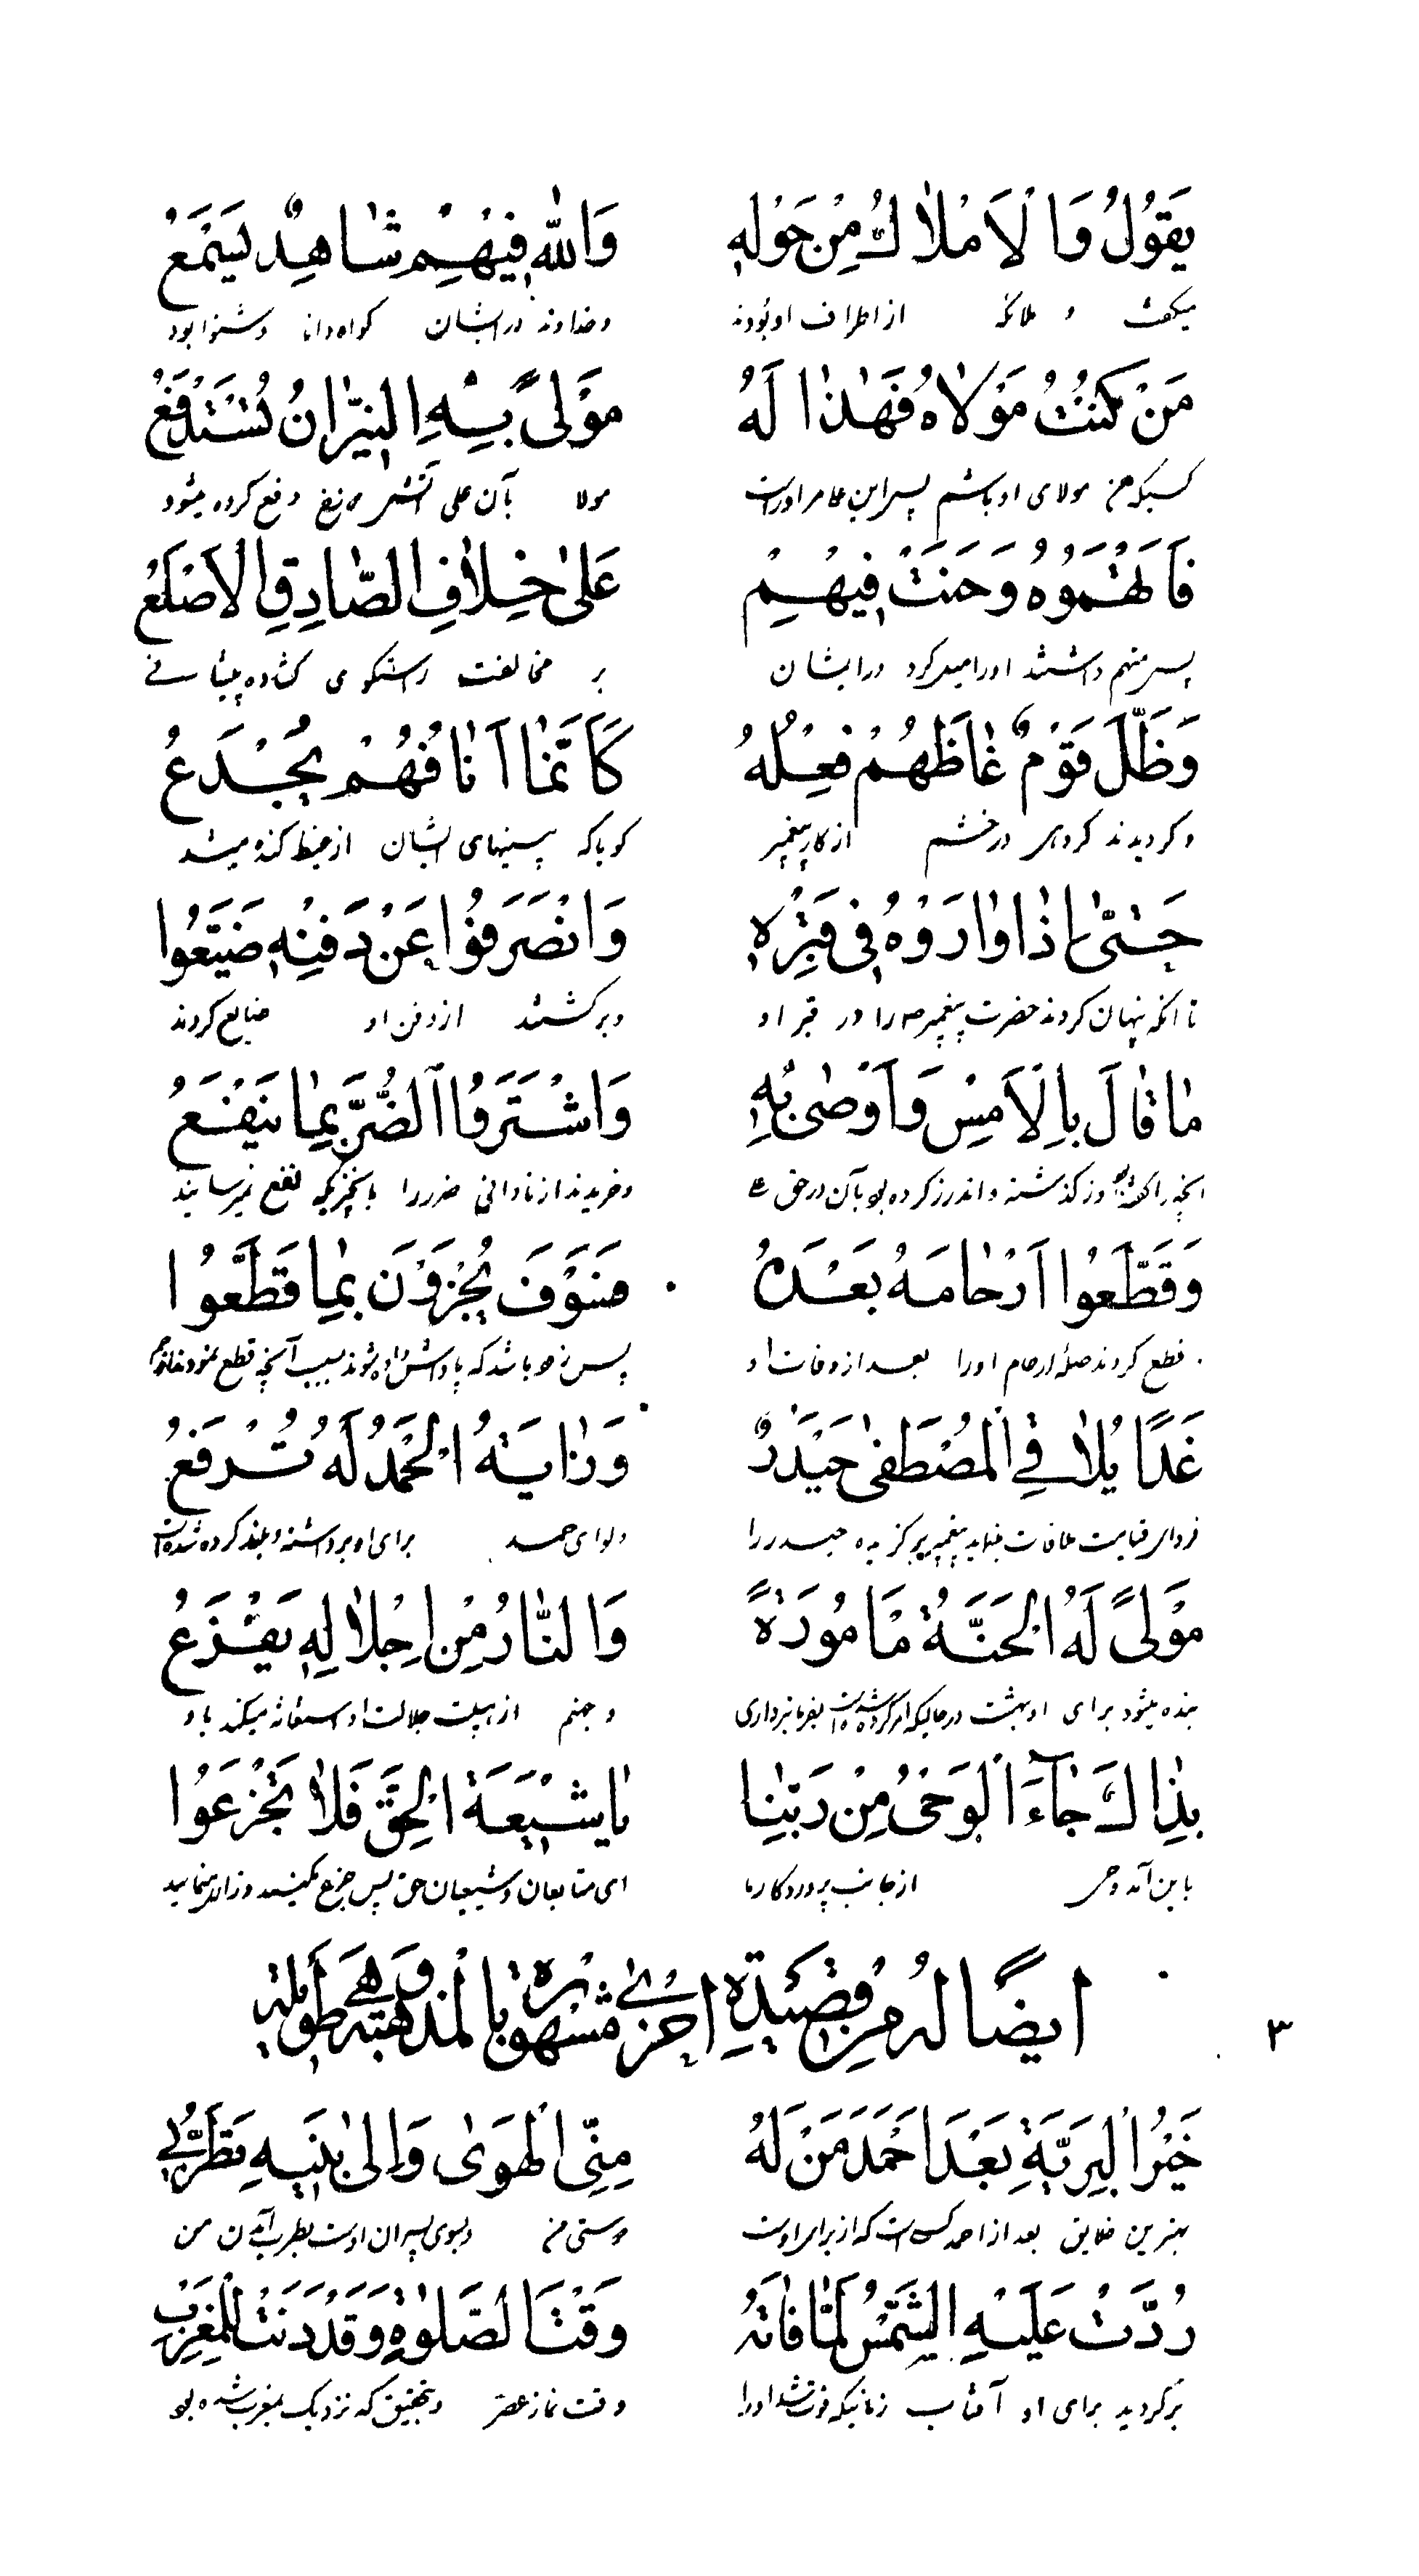 يَقُولُ وَالْاَمْلاٰكُ مِنْ حَوْلِهِ وَاللّٰهُ فِيهِمْ شٰاهِدٌ يَسْمَعُ
میگفت و ملائکه از اطراف او بودند وخداوند در ایشان گواه دانا وشنوا بود
مَنْ كُنْتُ مَوْلاٰهُ فَهٰذٰا لَهُ مَوْلىً بِهِ النِّيرٰانُ تُسْتَدْفَعُ
کسیکه من مولای او باشم پس این علی مر او راست مولا بآن علی آتش دوزخ دفع کرده میشود
فَاتَّهَمُوهُ وَحَنَتْ فِيهِمْ عَلىٰ خِلاٰفِ الصّٰادِقِ الْاَضْلَعُ
پس متهم داشتند اورا میل کرد در ایشان بر مخالفت راستگوی گشاده پیشانی
وَظَلَّ قَوْمٌ غٰاظَهُمْ فِعْلُهُ كَاَنَّمٰا آنٰافُهُمْ تُجْدَعُ
وگردیدند گروهی در خشم از کار پیغمبر گویا که بینیهای ایشان از غیظ کنده میشد
حَتّىٰ اِذٰا وٰارَوْهُ فِي قَبْرِهِ وَانْصَرَفُوا عَنْ دَفْنِهِ ضَيَّعُوا
تا آنکه پنهان کردند حضرت پیغمبر را در قبر او وبرگشتند از دفن او ضایع کردند
مٰا قٰالَ بِالْاَمْسِ وَاَوْصىٰ بِهِ وَاشْتَرَوُا الضُّرَّ بِمٰا يَنْفَعُ
آنچه را گفته بود روز گذشته واندرز کرده بود بآن در حق وخریدند از نادانی ضرر را بآنچیزیکه نفع میرسانید
وَقَطَّعُوا اَرْحٰامَهُ بَعْدَهُ فَسَوْفَ يُجْزَوْنَ بِمٰا قَطَّعُوا
قطع کردند صله ارحام اورا بعد از وفات او پس زود باشد که پاداش داده شوند بسبب آنچه قطع نمودند
غَدًا يُلاٰقِي الْمُصْطَفىٰ حَيْدَرٌ وَرٰايَةُ الْحَمْدِ لَهُ تُرْفَعُ
فردای قیامت ملاقات نماید پیغمبر برگزیده حیدر را ولوای حمد برای او برداشته وبلند کرده شده
مَوْلىً لَهُ الْجَنَّةُ مَأْمُورَةٌ وَالنّٰارُ مِنْ اِجْلاٰلِهِ تَفْزَعُ
بنده میشود برای او بهشت در حالیکه امر کرده شده بفرمانبرداری وجهنم از هیبت جلالت او استغاثه میکند باو
بِذٰاكَ جٰاءَ الْوَحْيُ مِنْ رَبِّنٰا يٰا شِيْعَةَ الْحَقِّ فَلاٰ تَجْزَعُوا
باین آمد وحی از جانب پروردگار ما ای متابعان وشیعیان حق پس جزع مکنید
٣ ايضًا لهُ مِنْ قصيدةٍ اُخرىٰ مشهورة بالمذهبة وَهي طويلة
خَيْرُ الْبَرِيَّةِ بَعْدَ اَحْمَدَ مَنْ لَهُ مِنِّي الْهَوىٰ وَاِلىٰ بَنِيهِ تَطَرُّبِي
بهترین خلایق بعد از احمد کسی است که از برای اوست دوستی من وبسوی پسران اوست بطرب آمدن من
رُدَّتْ عَلَيْهِ الشَّمْسُ لَمّٰا فٰاتَهُ وَقْتُ الصَّلوٰةِ وَقَدْ دَنَتْ لِلْمَغْرِبِ
برگردید برای او آفتاب زمانیکه فوت شد اورا وقت نماز عصر وبتحقیق که نزدیک بمغرب شده بود